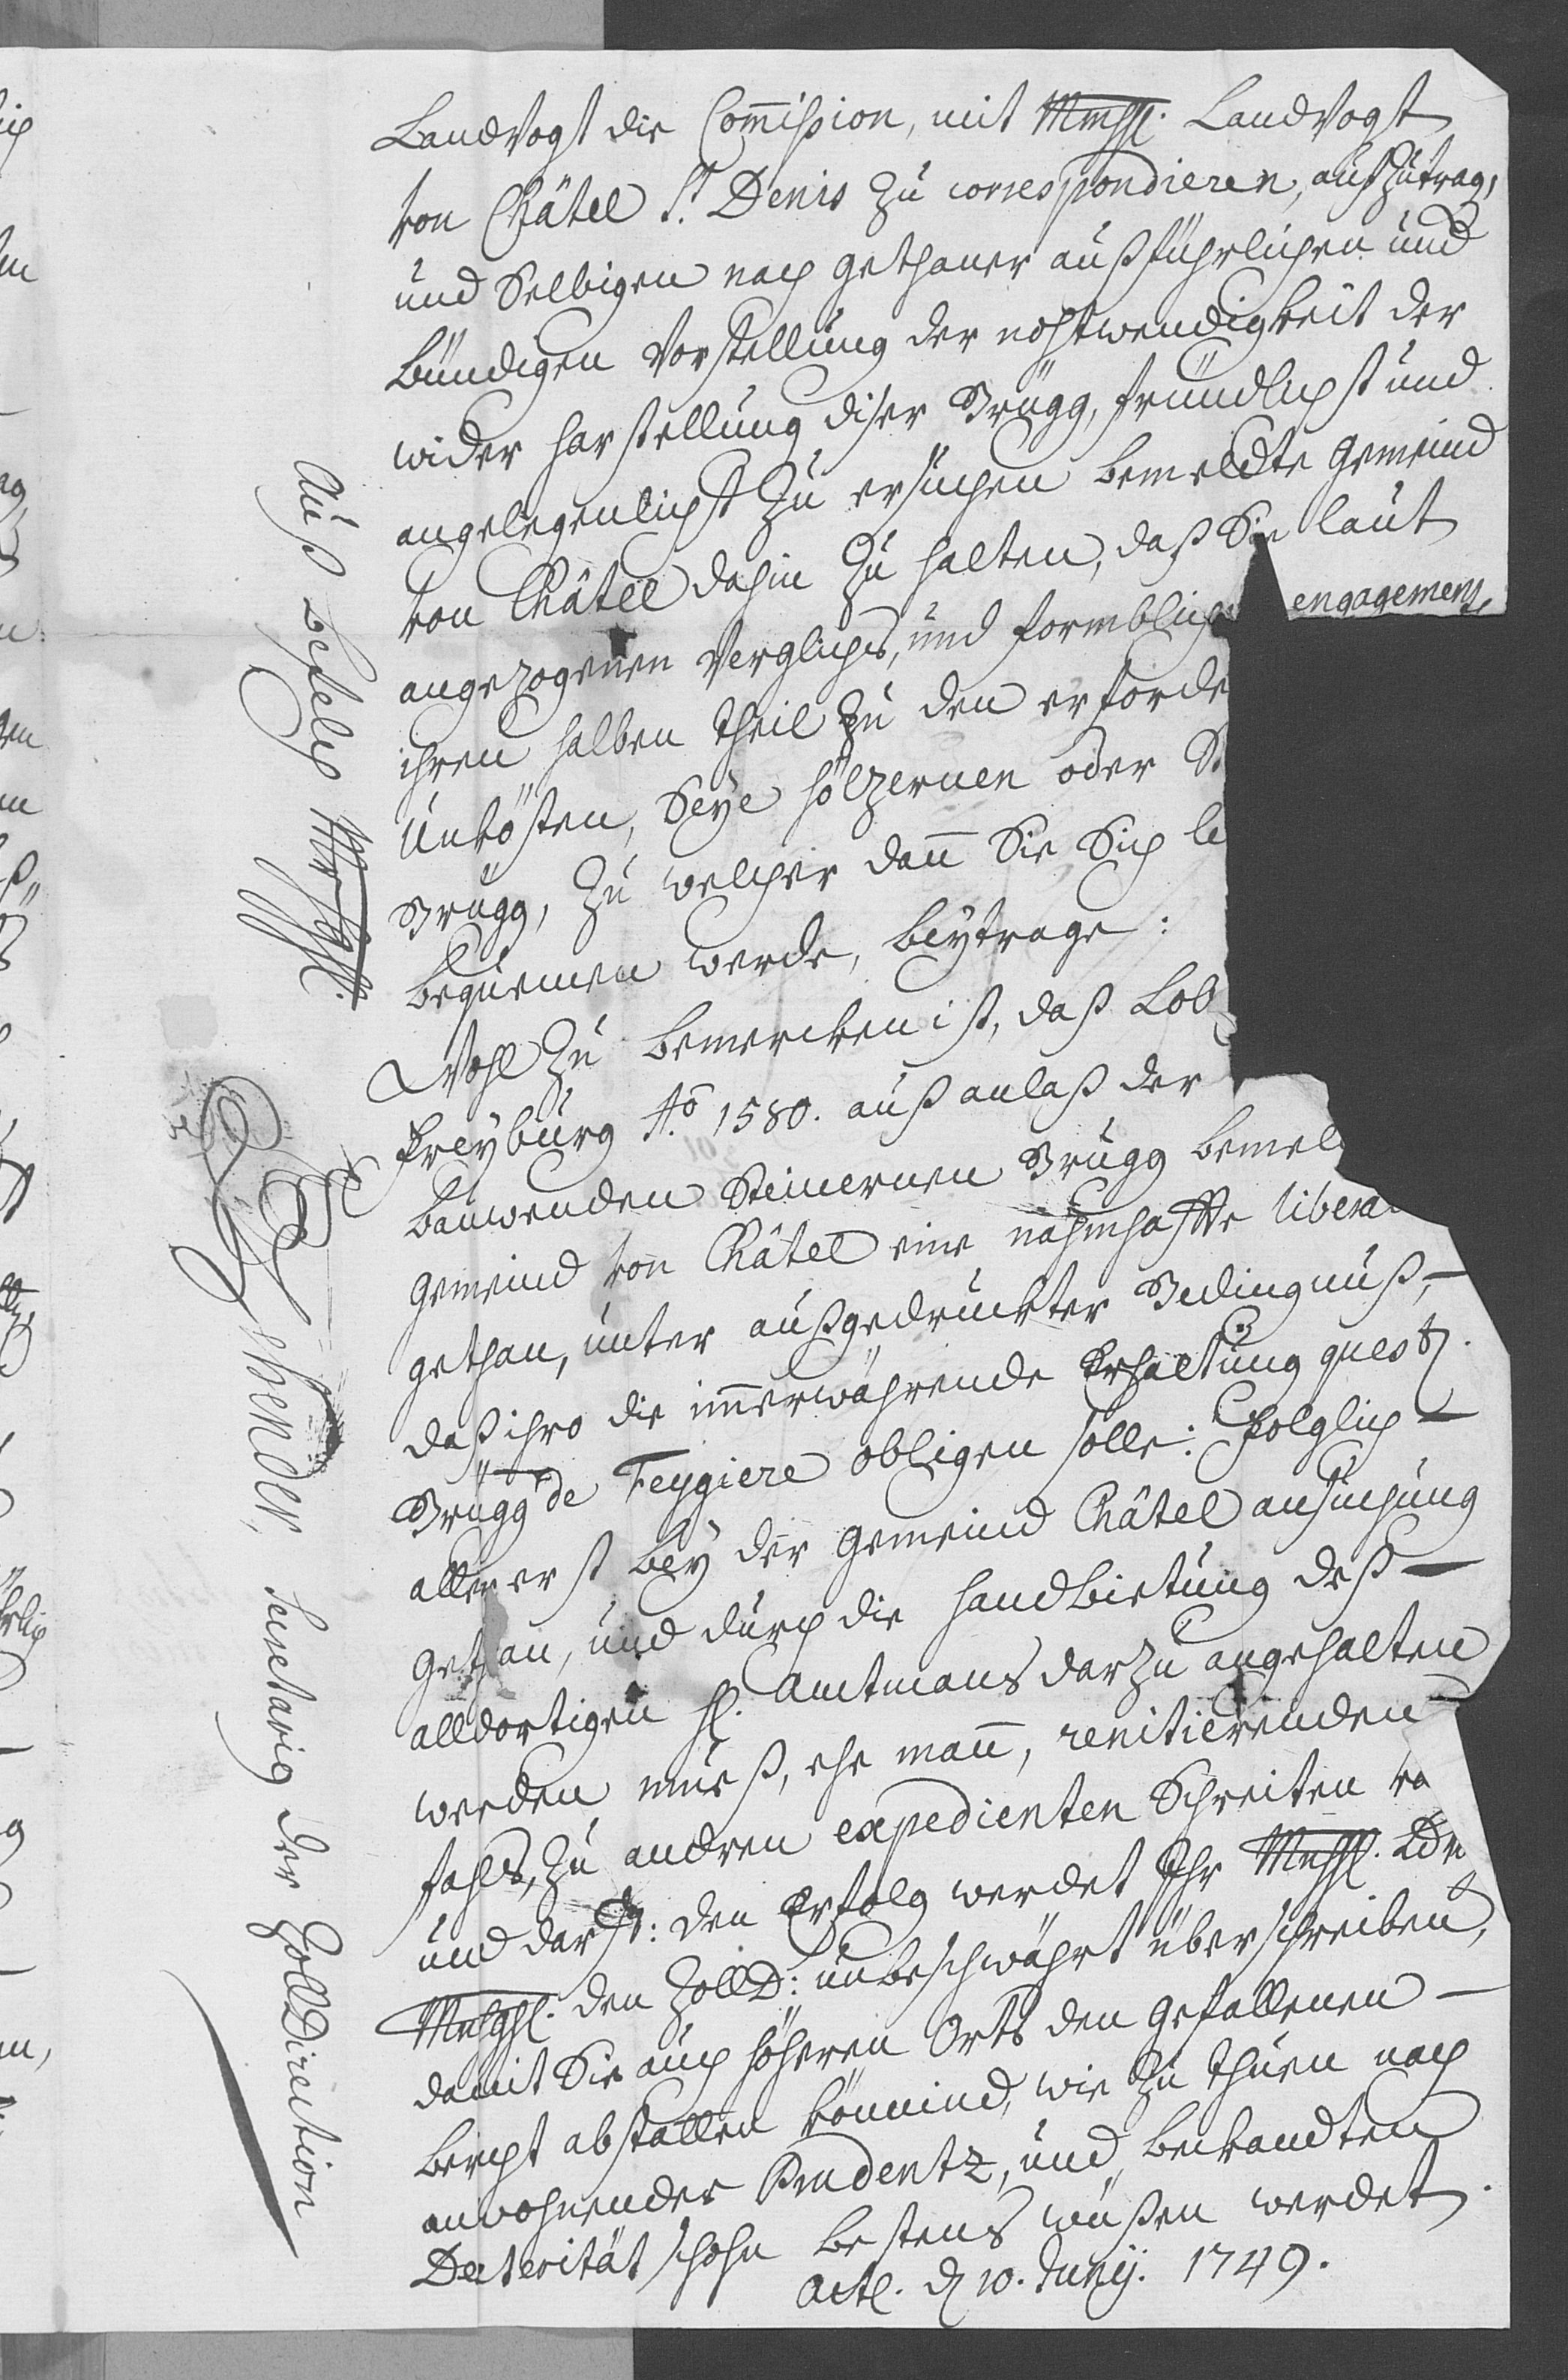 LandVogt die Com̄ißion, mit MmhH. LandVogt
von Châtel St. Denis zu correspondieren, aufzutrag,
und Selbigen nach gethaner außführlichen und
bündigen Vorstellung der nohtwendigkeit der
wider harstellung diser Brügg, fründlichst und
angelegenlichst zu ersuchen bemeldte Gemeind
von Châtel dahin zu halten, daß Sie laut
angezogenen Verglichs, und formblich engagements
ihren halben theil zu den erforde
Unkösten, Seye höltzernen oder St
Brügg, zu welcher dan̄ Sie Sich
bequemen werde, beytrage:
Wohl zu bemercken ist, daß Lob
Freyburg Ao 1580. auß anlaß der
bauwenden Steinernen Brügg bemel
Gemeind von Châtel eine nahmhaffte libera
gethan, unter außgedruckter Bedingnuß,
daß ihro die im̄erwährende Erhaltung quest.
Brügg de Feygiere obligen solle: Folglich
allererst bey der Gemeind Châtel ansuchung
gethan, und durch die Handbietung deß
alldortigen H. Amtmans darzu angehalten
werden muß, ehe man̄, renitierenden
fahls, zu andren expedienten Schreiten
und darf: den Erfolg werdet Ihr MnhH. Ldv
MehghH. den Zoll D: unbeschwährt überschreiben,
damit Sie auch höheren Orts den gefallenen
bericht abstatten kön̄ind, wie zu thuen nach
anwohnender Prudentz, und bekandten
Dexterität schohn bestens wüßen werdet.
Actl. d 10. Junij. 1749.
Auß befelch MrhghH.
Secretario der Zoll Direction